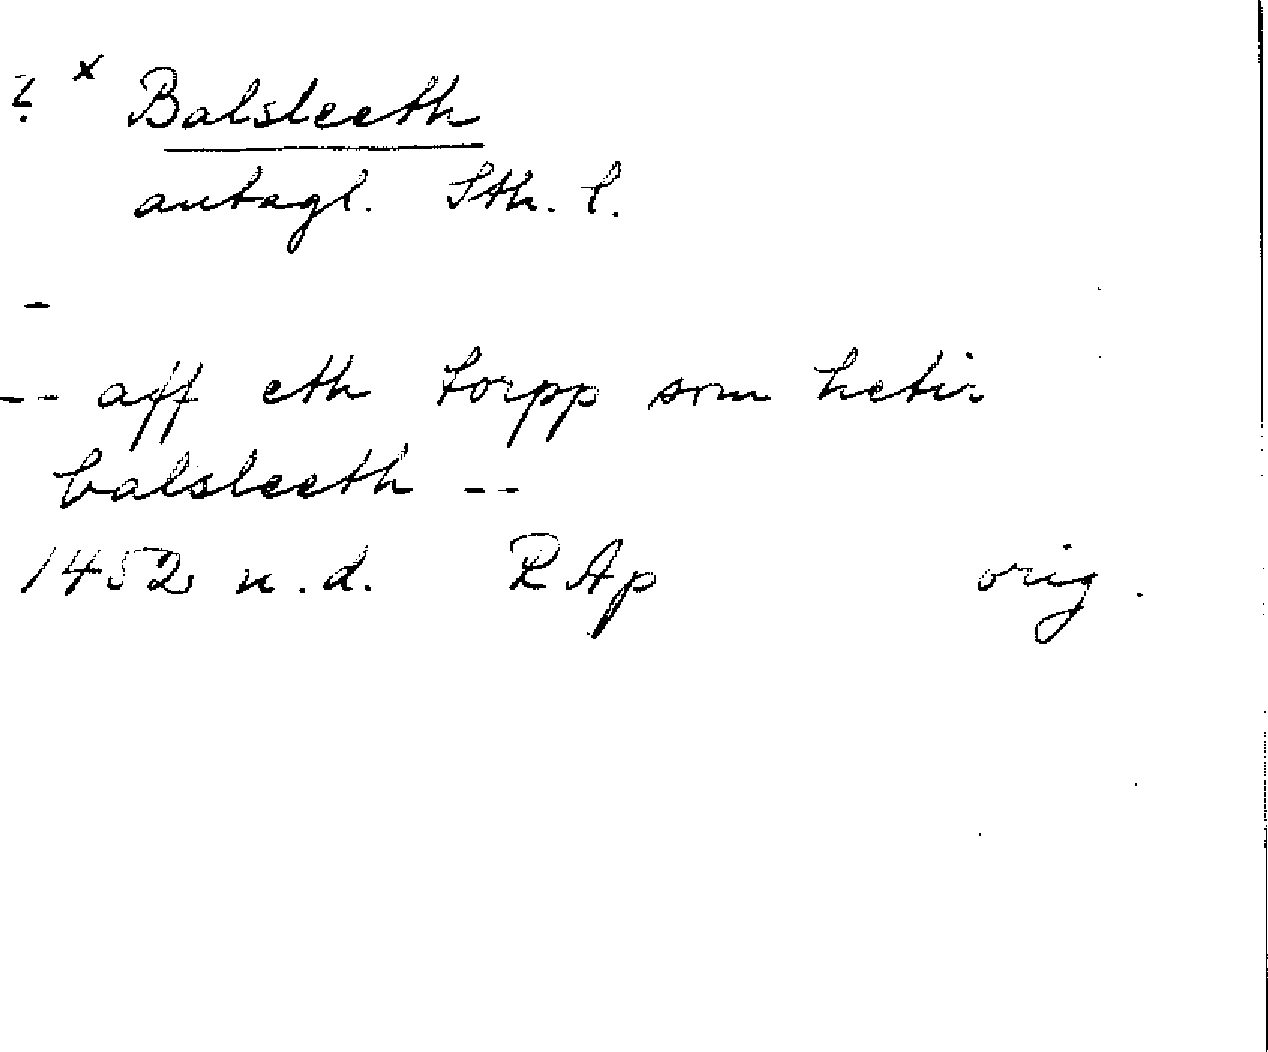 ? x Balsleeth
antagl. Sth. l.
-
-- aff eth torpp som hetir
balsleeth --
1452 n.d. RAp orig.